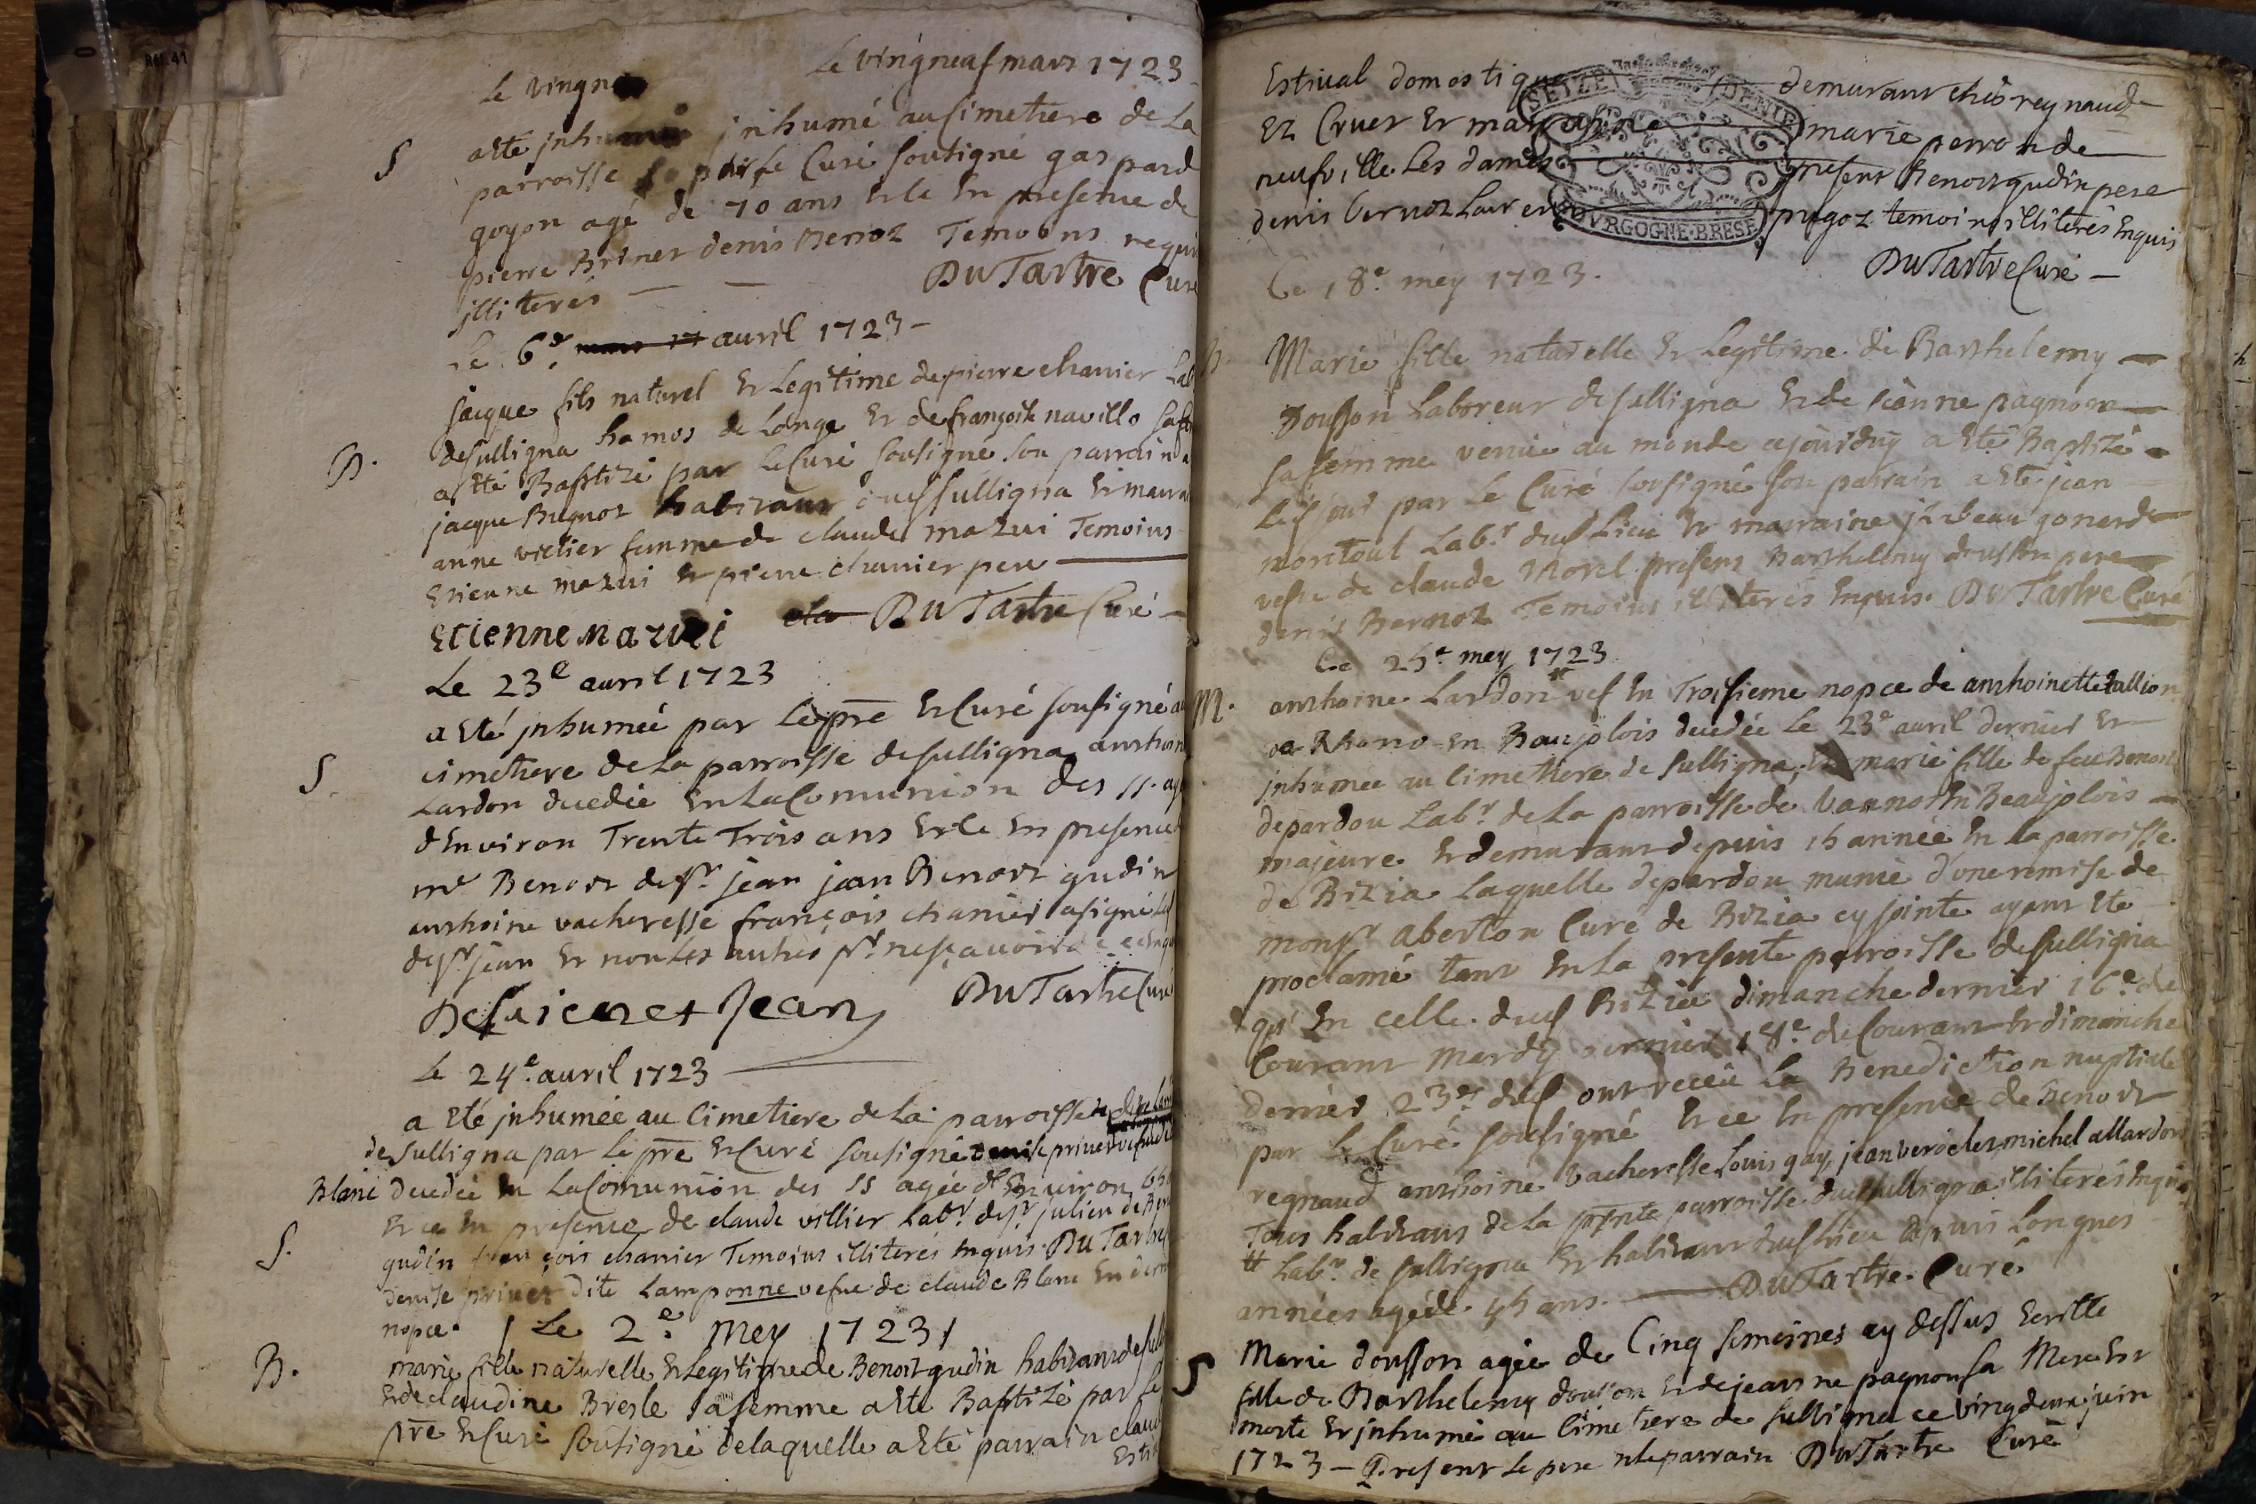 Le vingneuf mars 1723
Le vingn
S
a Eté jnhumé au simetiere de La
parroisse par Le Curé soutigné gaspard
goyon agé de 70 ans Et ce En presense de
pierre Brunet denis Bernoz Temoens requi
jlliterés
DuTartre Curé
Le 6e avril 1723
jacque fils naturel Et Legitime de pierre chanier Lab
de sulligna hamos de Longe Et de françoise navillo safe
B.
a Eté Baptizé par Le Curé sousigné son parrain a
jacque Bugnot habitant dud sulligna Et marra
anne victier femme de claude mazui Temoins
Etienne mazui Et pierre chanier pere
Etienne Mazuei DuTartre Curé
Le 23e auril 1723
a Eté jnhumée par Le pre Et Curé sousigné au
S.
cimetiere de La parroisse de sulligna anthoin
Lardon decedée En La Comunion des SS. ag
d'Environ Trente Trois ans Et ce En presence
mr Benoit de sr jean jean Benoit gudin
anthoine vacheresse françois chanier a signé Led
de sr jean Et non Les autres pr ne sçavoir
De St jean
DuTartre Curé
Le 24e auril 1723
a Eté jnhumée au Cimetiere de La parroisse
de Sulligna par Le pre Et Curé sousigné denise priuet vefue de
Blanc decedée En La Comunion des SS agée d'Enuiron 65
Et ce En presense de claude villier Labr de sr julien
S.
gudin françois chanier Temoins illiterés Enquis. DuTartre
denise priuet dite Lamponne vefue de claude Blanc En
nopce
Le 2e Mey 1723
B.
marie fille naturelle Et Legitime de Benoit gudin habitant de sull
Et de claudine Bresle sa femme a Eté Baptizé par Le
pre Et Curé soutigné de laquelle a Eté parrain claud
Esti
Estiual domestique demurant chés reynaud
Ez Cruet Et marraine marie perron de
neufuille Les dames present Benoit gudin pere
denis bernoz Laurent pugoz temoins illiterés Enquis
SEIZE DENIE
BOVRGOGNE·BRESE
DuTartre Curé
Ce 18e mey 1723.
B.
Marie fille naturelle Et Legitime de Barthelemy
Dousson Laboreur de sulligna Et de jeanne pagnon
sa femme venüe au monde ajourduy a Eté Baptizé
par Le Curé sousigné son parrain a Eté jean
montoul Labr dud Lieu Et marraine jsabeau gonard
vefue de claude Morel presens Barthelemy dousson pere
denis Bernoz Temoins illiterés Enquis. DuTartre Curé
Ce 25e mey 1723
M.
anthoine Lardon vef En Troisieme nopce de anthoinette tallion
Beaujolois decedée Le 23e auril dernier Et
jnhumee au Cimetiere de sulligna; Et marie fille de feu Benoit
depardou Labr de La parroisse de En Beaujolois
majeure Et demurant depuis 15 année En La parroisse
de Bizia Laquelle depardou munie d'une remise de
monsr aberton Curé de Bizia cy jointe ayant Eté
proclamé tant En La presente parroisse de sulligna
qu'En celle dud Bizia dimanche dernier 16e du
Courant Mardy dernier 18e de Courant Et dimanche
dernier 23e dud ont receü La Benediction nuptiale
par Le Curé sousigné Et ce En presense de Benoit
regnaud anthoine vacheresse Louis gay, jean verodet michel allardon
Tous habitans de La pnte parroisse dud sulligna illiterés Enquis
# Labr de sulligna Et habitant dud Lieu depuis Longues
années agé de 45 ans. DuTartre Curé
S
Marie dousson agée de Cinq semeines cy dessus Escritte
fille de Barthelemy dousson Et de jeanne pagnon sa Mere Est
morte Et jnhumé au Cimetiere de sulligna ce vingdeux juin
1723 — Present Le pere Et le parrain DuTartre Curé